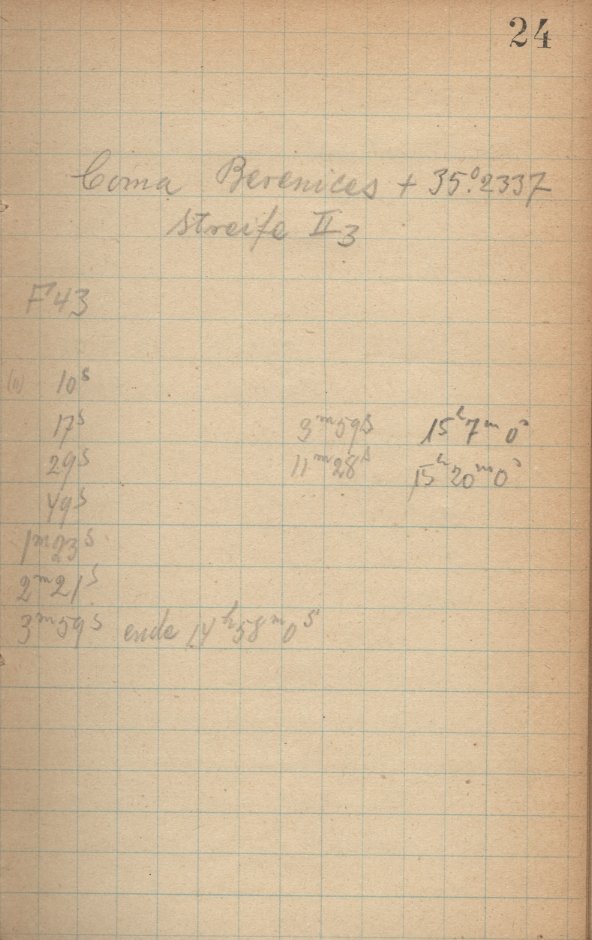 24
Coma Berenices + 35.°2337
Streife II3
F 43
(11) 10s
17s 3m59s 15h7m0s
29s 11m28s 15h20m0s
49s
1m23s
2m21s
3m59s ende 14h58m0s